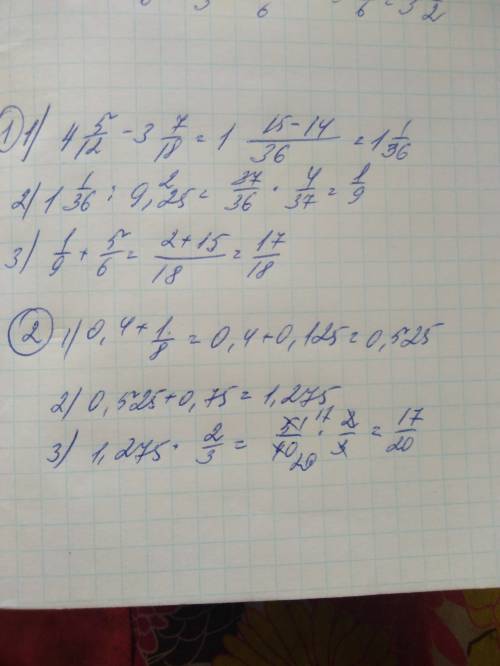 1) 1) 4 5/12 - 3 7/18 = 1 (15-14)/36 = 1 1/36
2) 1 1/36 : 9,25 = 37/36 · 4/37 = 1/9
3) 1/9 + 5/6 = (2+15)/18 = 17/18
2) 1) 0,4 + 1/8 = 0,4 + 0,125 = 0,525
2) 0,525 + 0,75 = 1,275
3) 1,275 · 2/3 = 51/40 · 2/3 = 17/20